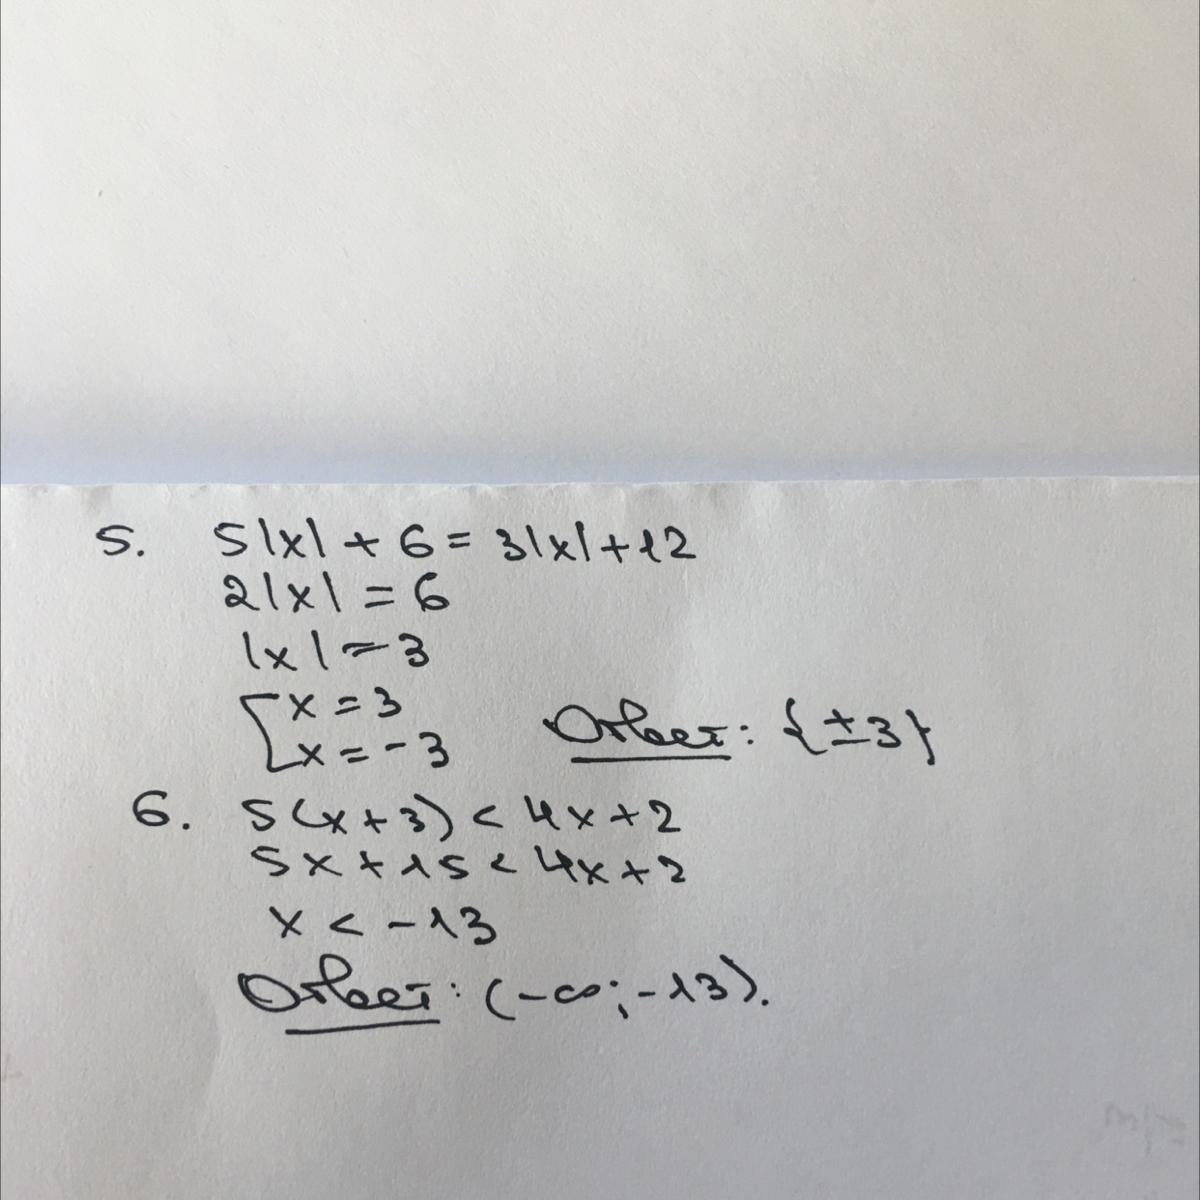 5. 5|x| + 6 = 3|x| + 12
2|x| = 6
|x| = 3
[x = 3
[x = -3
Ответ: {±3}
6. 5(x + 3) < 4x + 2
5x + 15 < 4x + 2
x < -13
Ответ: (-∞; -13).